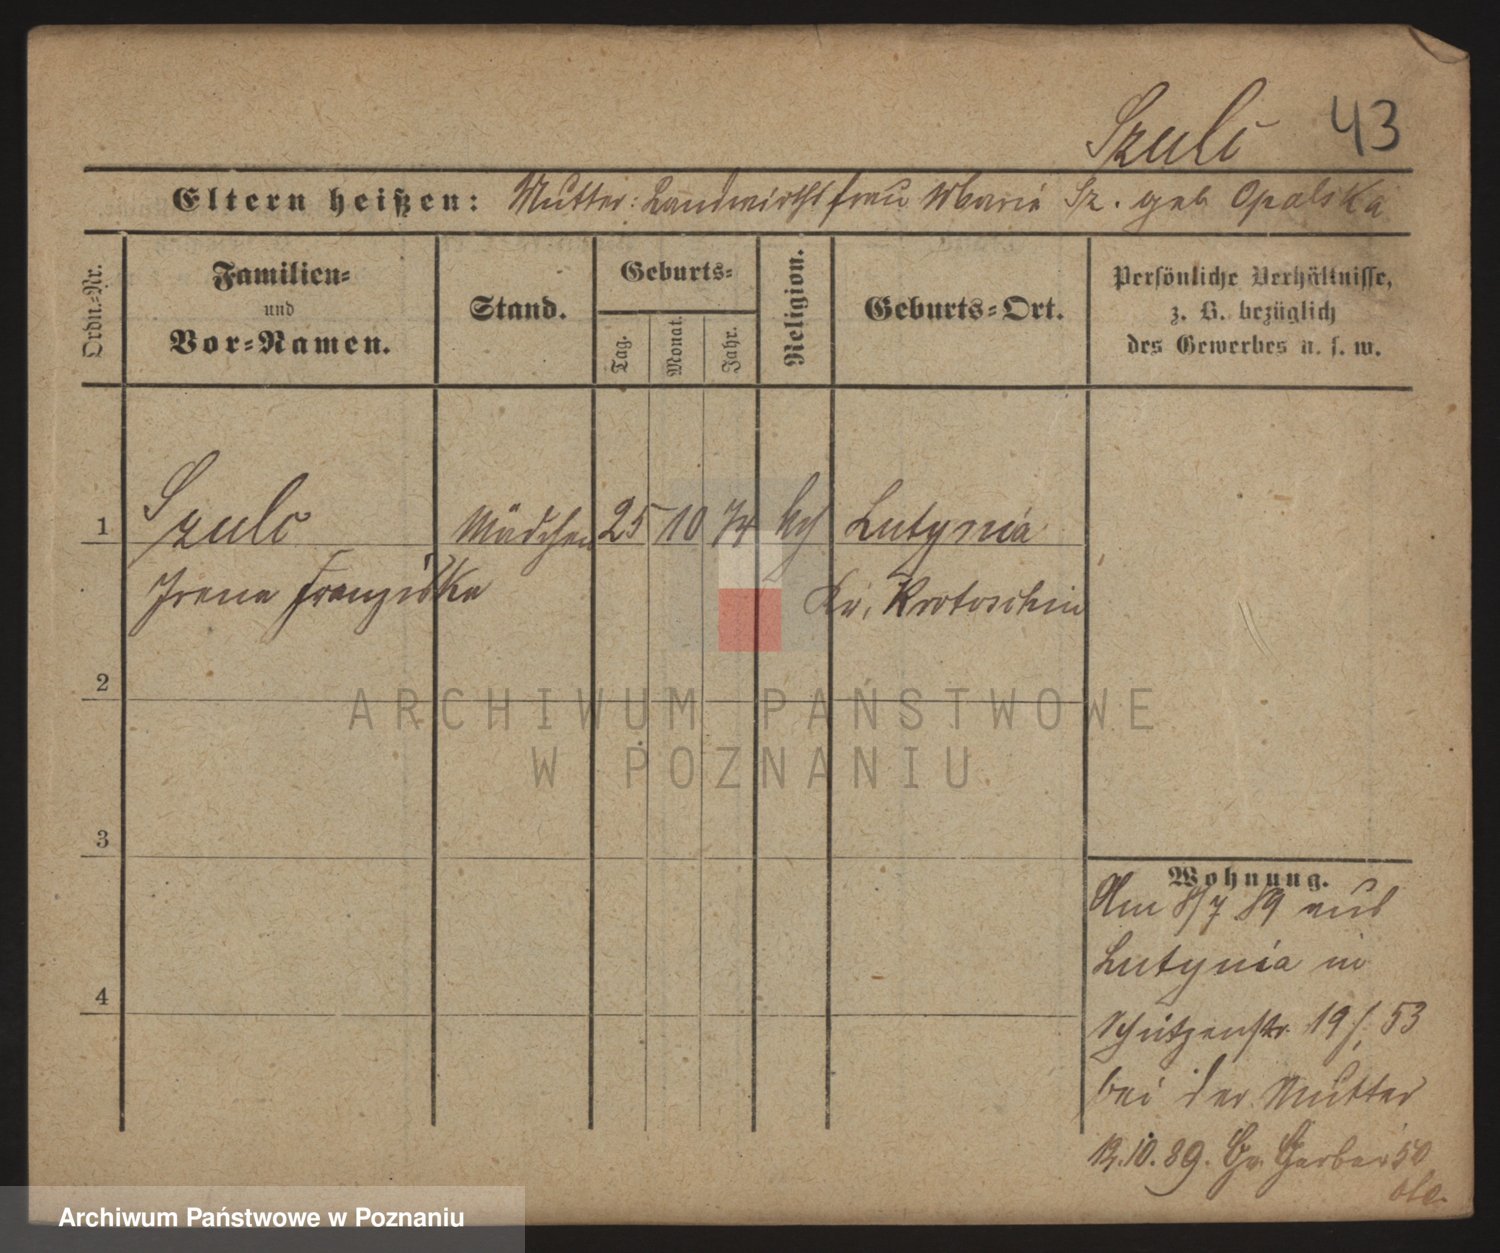 Szulc 43
Eltern heißen: Mutter: Landwirthsfrau Marie Sz. geb Opalska
Ordn.-Nr.
Familien-
und
Vor-Namen.
Stand.
Geburts-
Tag.
Monat.
Jahr.
Religion.
Geburts-Ort.
Persönliche Verhältnisse,
z. B. bezüglich
des Gewerbes u. s. w.
1 Szulc Mädchen 25 10 74 kth Lutynia
Irena Franziska Kr. Krotoschin
2
3
4
Wohnung.
Am 8/7 89 aus
Lutynia in
Schützenstr. 19/ 53
bei der Mutter
12.10.89. Gr. Gerber 50
ARCHIWUM PAŃSTWOWE
W POZNANIU
Archiwum Państwowe w Poznaniu